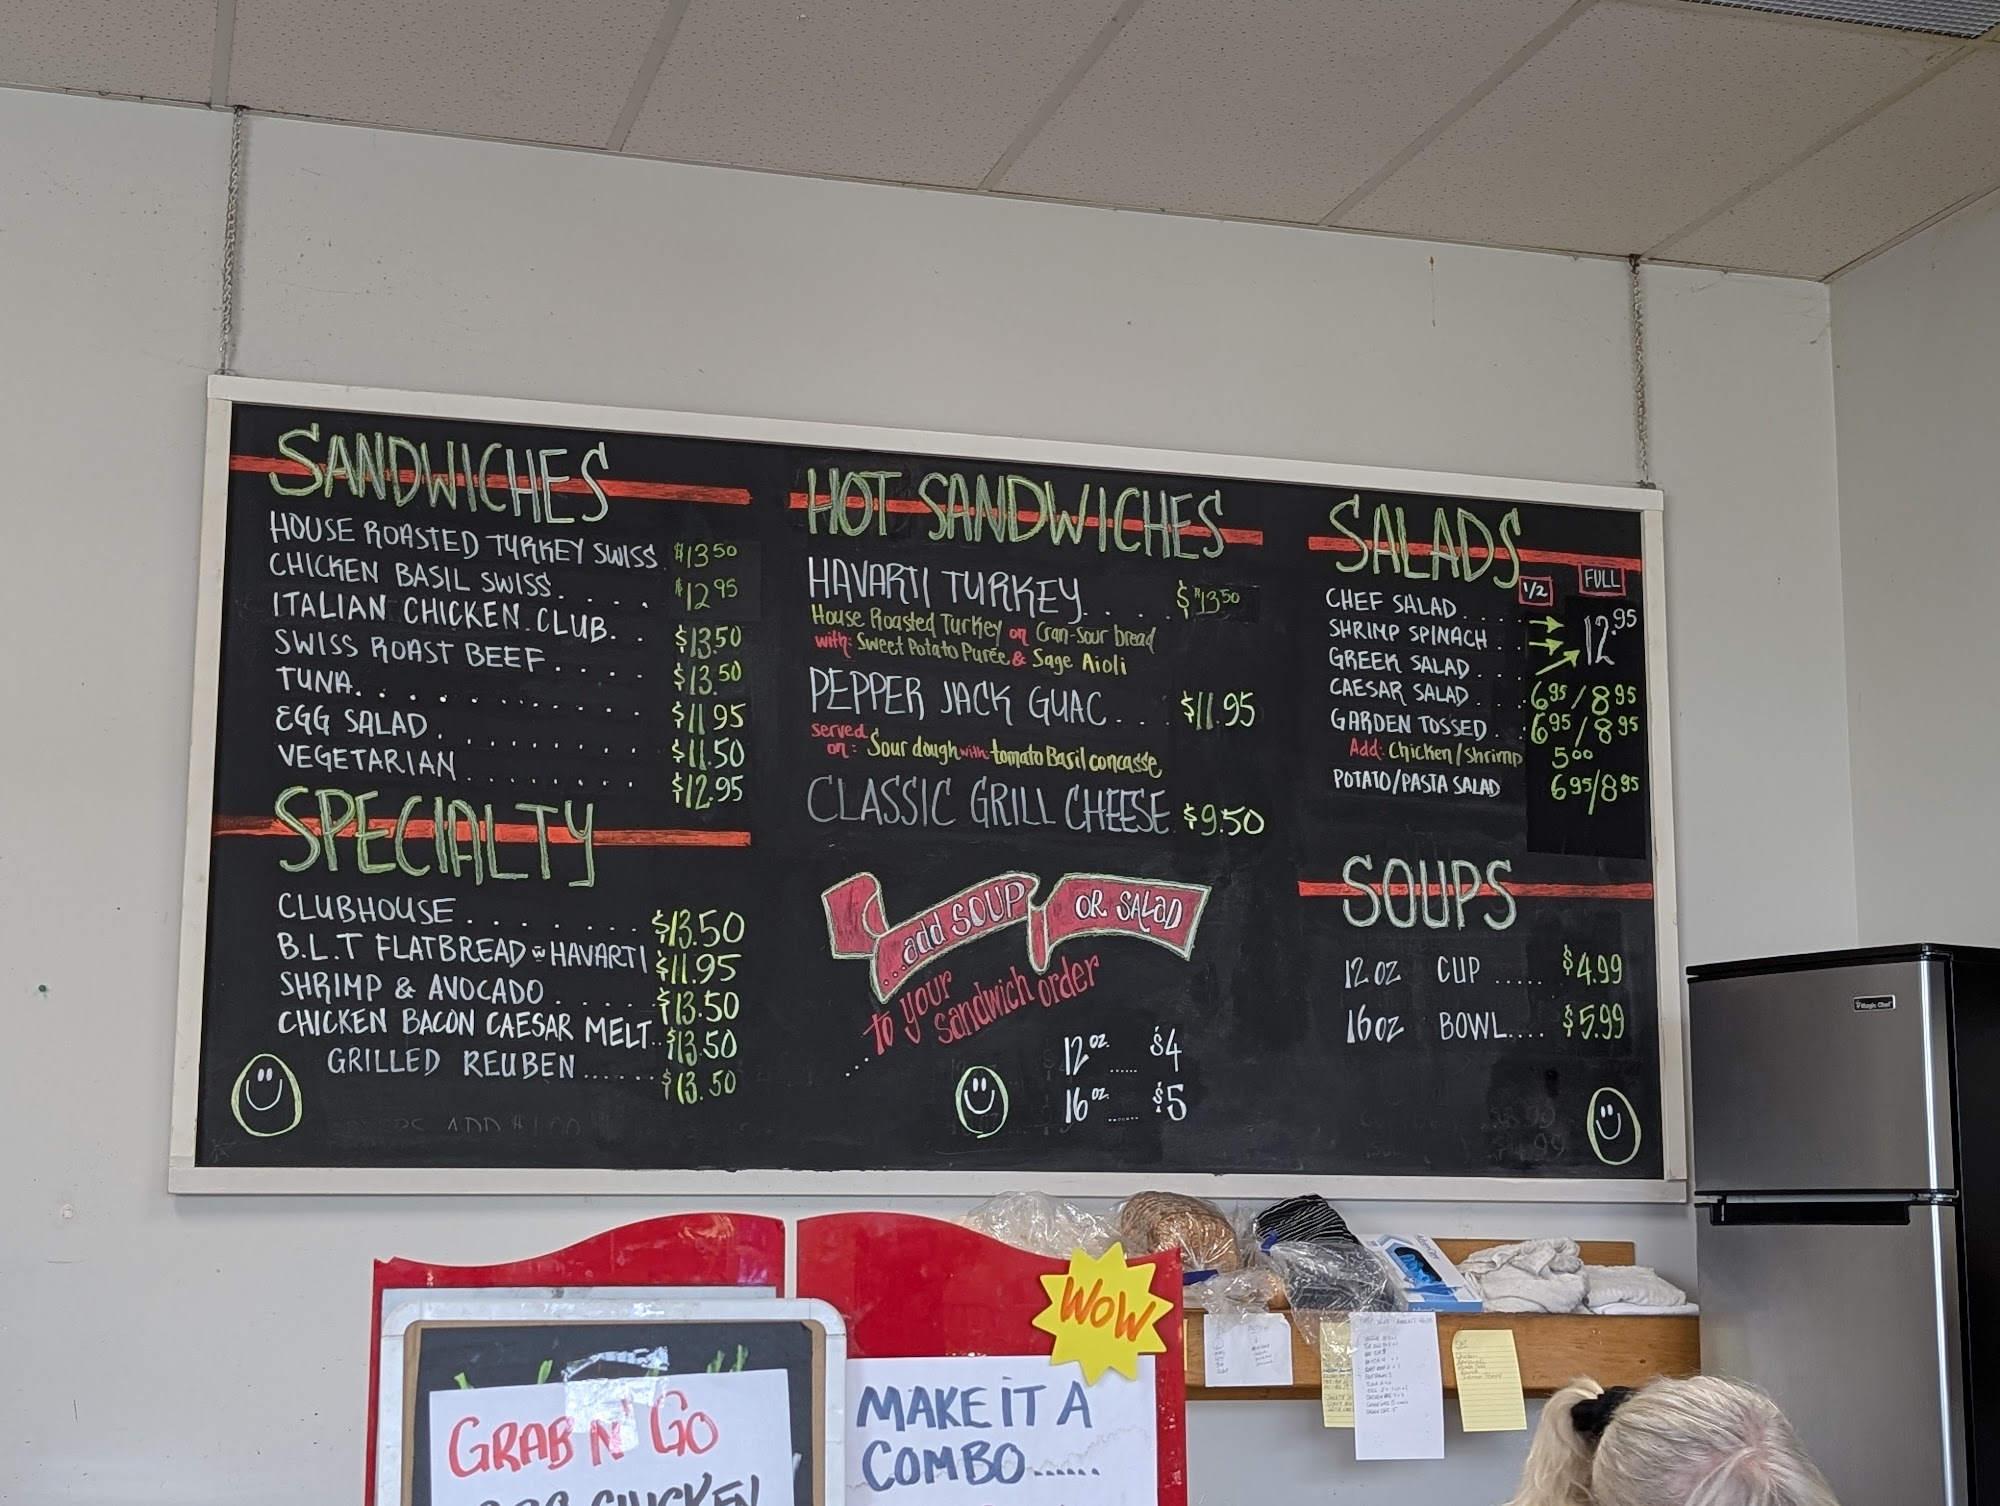 SANDWICHES
HOUSE ROASTED TURKEY SWISS. $13 50
CHICKEN BASIL SWISS. . . . . $12 95
ITALIAN CHICKEN CLUB. . $13.50
SWISS ROAST BEEF. . . . . $13.50
TUNA. . . . . . . . . . $11 95
EGG SALAD. . . . . . . . $11.50
VEGETARIAN. . . . . . . $12.95
SPECIALTY
CLUBHOUSE. . . . . . . $13.50
B.L.T FLATBREAD w HAVARTI $11.95
SHRIMP & AVOCADO. . . . . $13.50
CHICKEN BACON CAESAR MELT.. $13.50
GRILLED REUBEN...... $13.50
ADD $1.00
HOT SANDWICHES
HAVARTI TURKEY. . . $ $13 50
House Roasted Turkey on Cran-Sour bread
with: Sweet Potato Purée & Sage Aioli
PEPPER JACK GUAC. . . $11.95
served on: Sour dough with: tomato Basil concasse
CLASSIC GRILL CHEESE $9.50
...add SOUP OR SALAD
to your
sandwich order
12 oz. ..... $4
16 oz. ...... $5
SALADS
1/2 FULL
CHEF SALAD. . . . 12.95
SHRIMP SPINACH . . 12
GREEK SALAD. . . .
CAESAR SALAD. . . 6 95 / 8 95
GARDEN TOSSED. . 6 95 / 8 95
Add: Chicken/Shrimp 5 00
POTATO/PASTA SALAD 6 95/8 95
SOUPS
12 OZ CUP ..... $4.99
16 OZ BOWL.... $5.99
Magic Chef
WOW
GRAB N' GO
CHICKEN
MAKE IT A
COMBO......